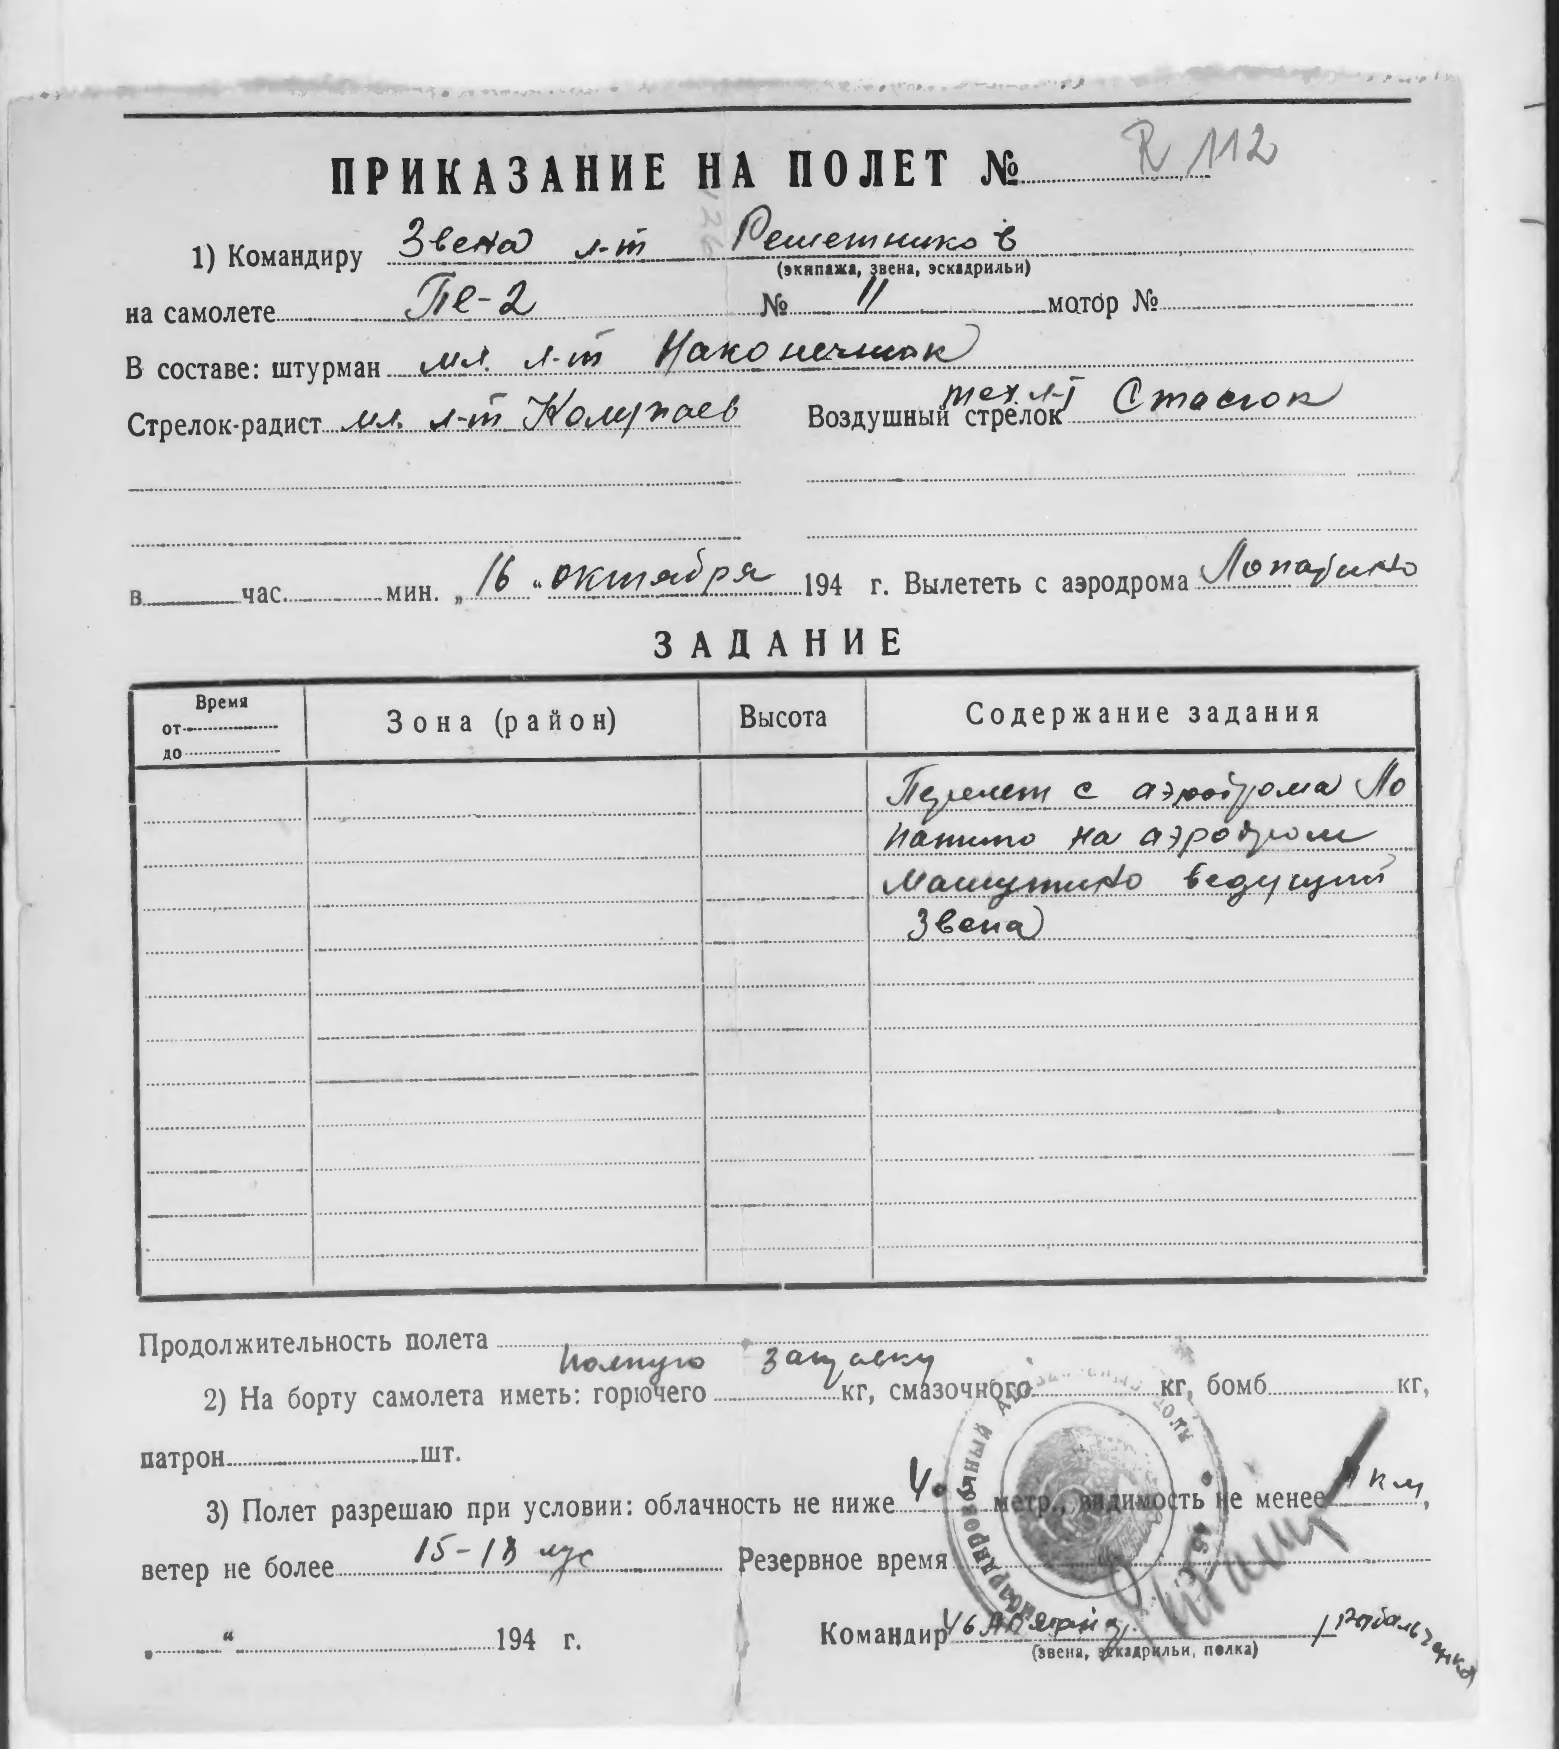 ПРИКАЗАНИЕ НА ПОЛЕТ № R 112
1) Командиру Звена л-т Решетников
(экипажа, звена, эскадрильи)
на самолете Пе-2 № 11 мотор №
В составе: штурман мл. л-т Наконечник
тех. л-т
Стрелок-радист мл. л-т Колупаев Воздушный стрелок Стасюк
в час. мин. „ 16 “ октября 194 г. Вылететь с аэродрома
ЗАДАНИЕ
Время
от
до
Зона (район) Высота Содержание задания
Перелет с аэродрома Ло
патино на аэродром
Машутино ведущий
Звена
Продолжительность полета
полную заправку
2) На борту самолета иметь: горючего кг, смазочного кг, бомб кг,
патрон шт.
3) Полет разрешаю при условии: облачность не ниже метр., видимость не менее км,
ветер не более 15-18 Резервное время
„ “ 194 г. Командир
(звена, эскадрильи, полка)